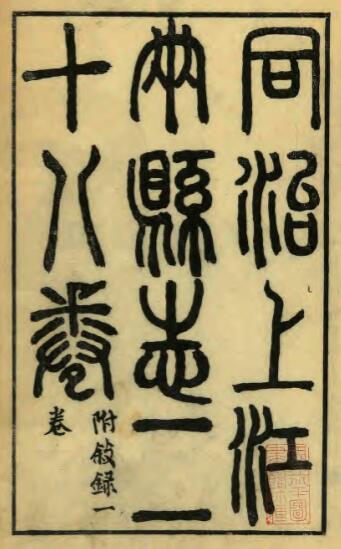 同治上江
兩縣志二
十八卷
附敍錄一
卷